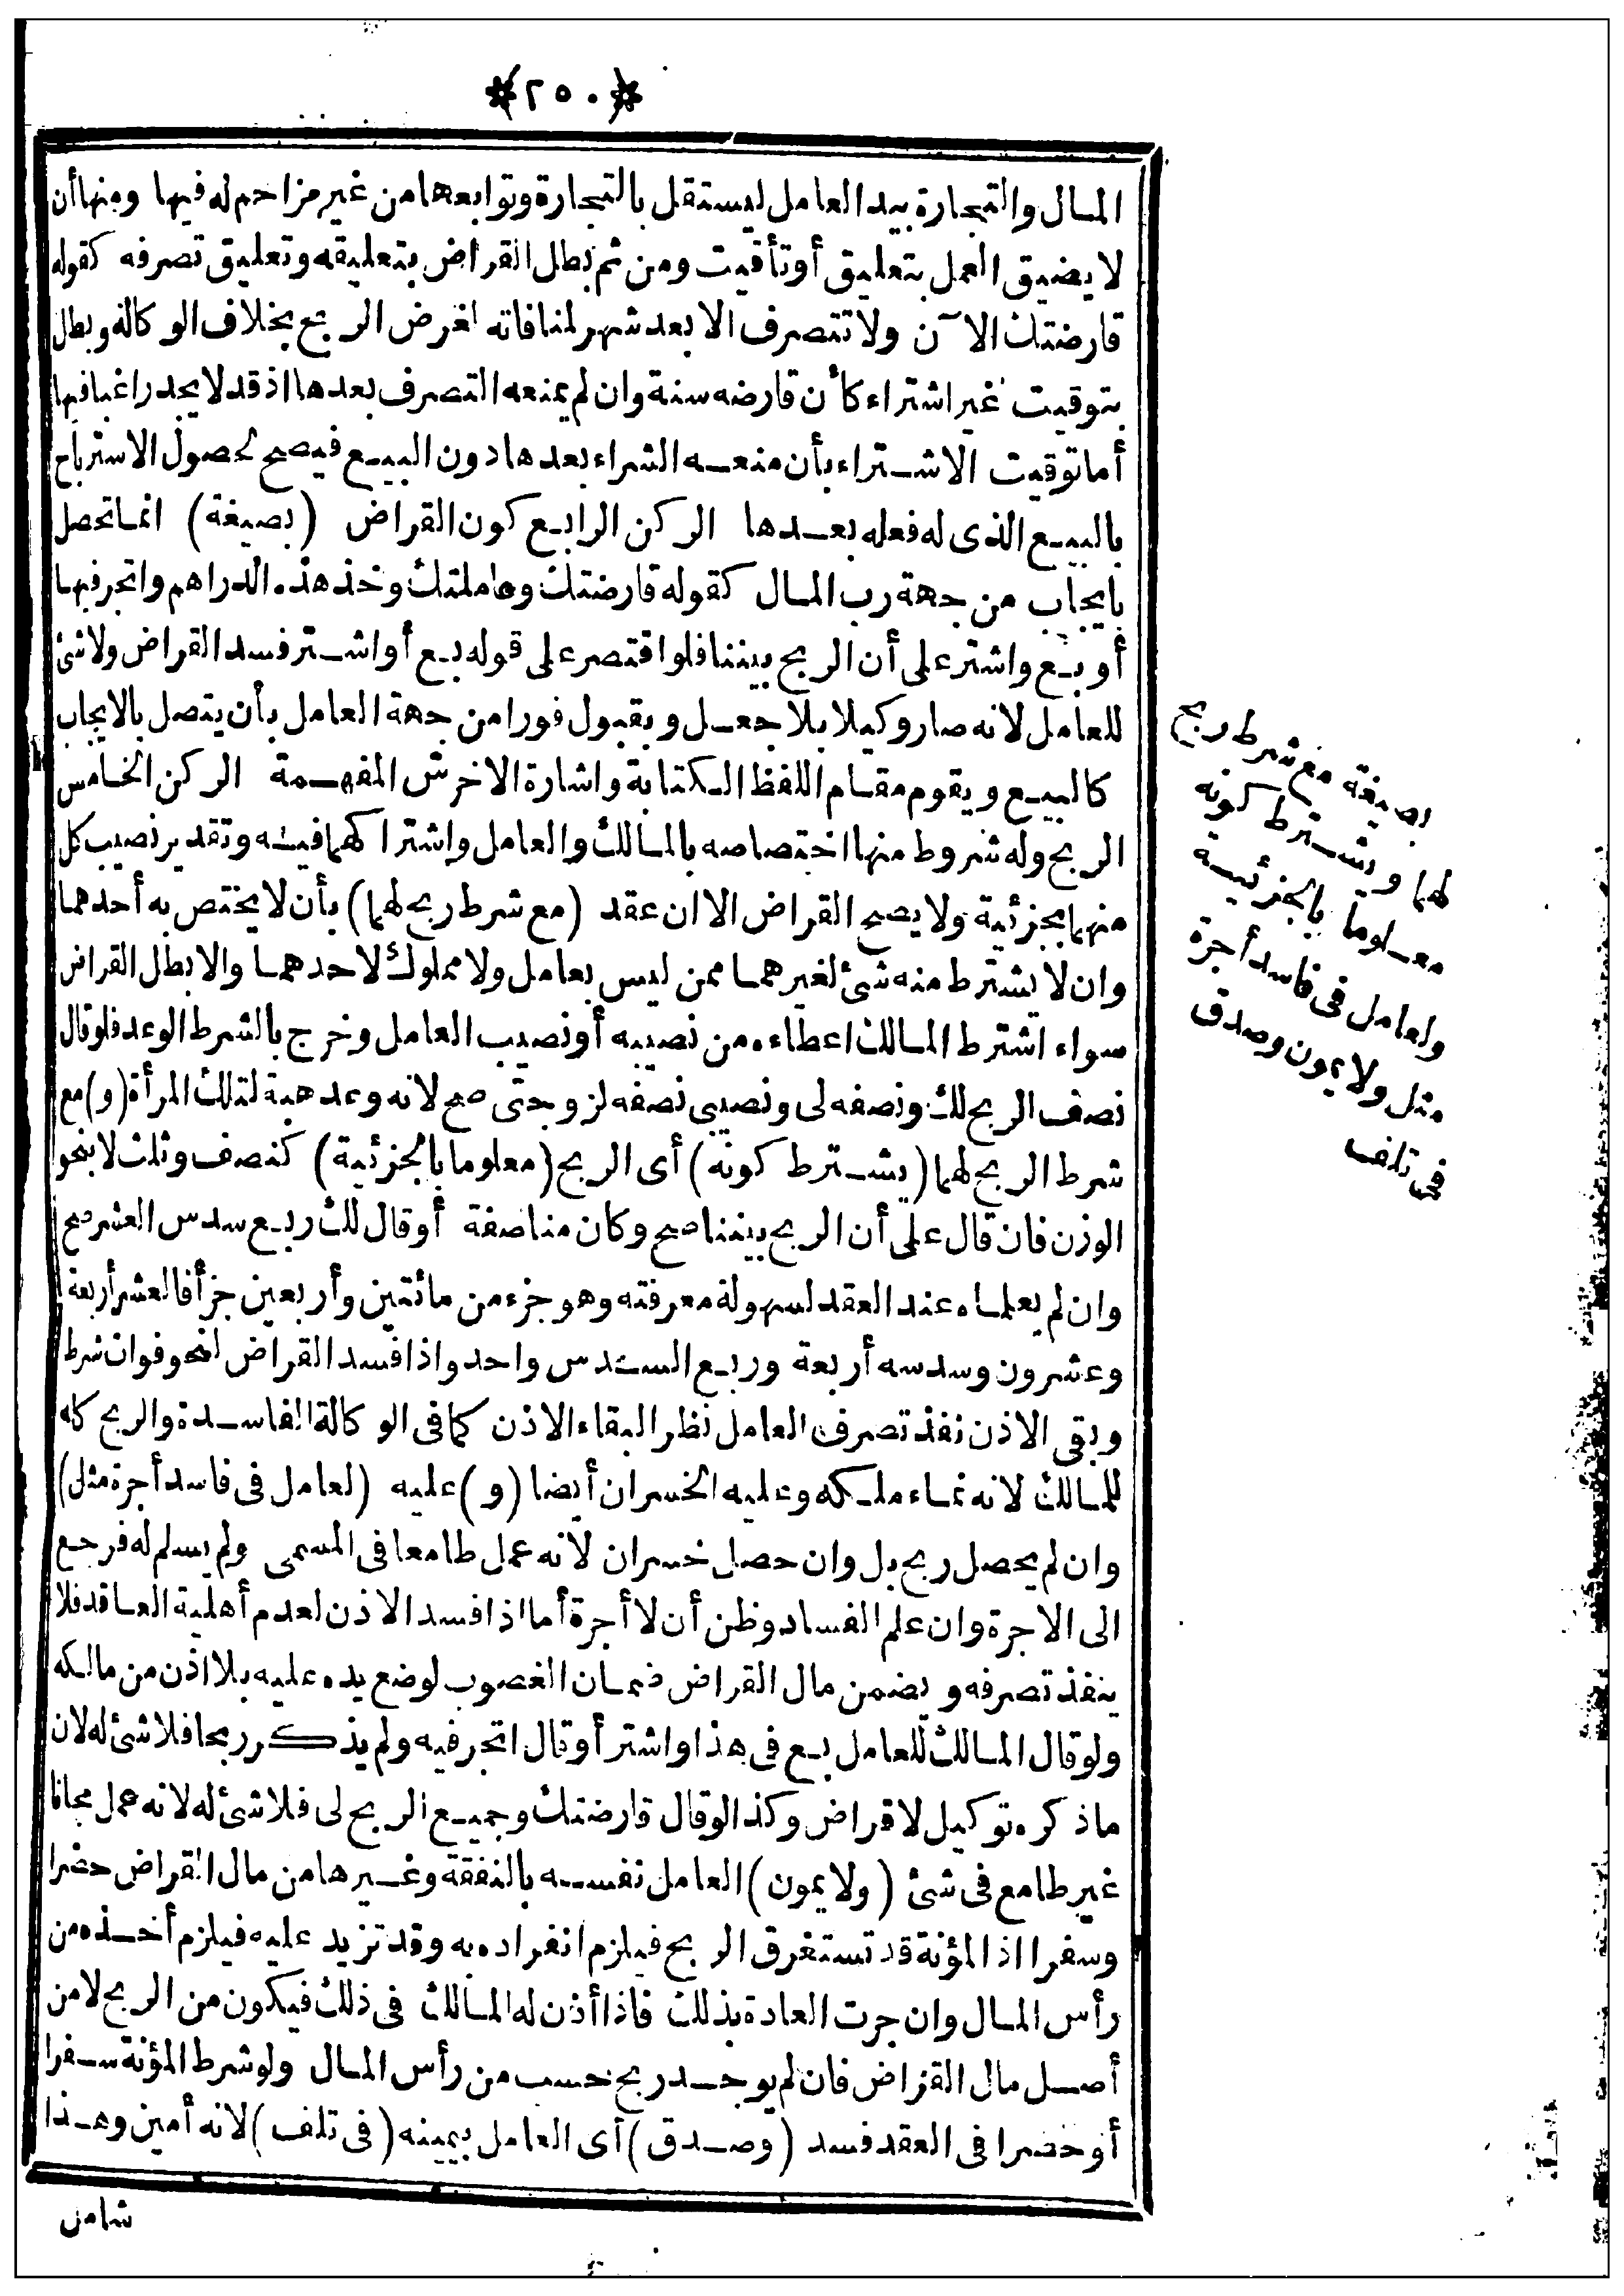 *(٢٥٠)*
المال والتجارة بيد العامل ليستقل بالتجارة وتوابعها من غير مزاحم له فيها ومنها أن
لا يضيق العمل بتعليق أو تأقيت ومن ثم بطل القراض بتعليقه وتعليق تصرفه كقوله
قارضتك الآن ولا تتصرف الا بعد شهر لمنافاته لغرض الربح بخلاف الوكالة وبطل
بتوقيت غير اشتراء كأن قارضه سنة وان لم يمنعه التصرف بعدها اذ قد لا يجد راغبا فيها
أما توقيت الاشتراء بأن منعه الشراء بعدها دون البيع فيصح لحصول الاسترباح
بالبيع الذى له فعله بعدها الركن الرابع كون القراض (بصيغة) انما تحصل
بايجاب من جهة رب المال كقوله قارضتك وعاملتك وخذ هذه الدراهم واتجر فيها
أو بع واشتر على أن الربح بيننا فلو اقتصر على قوله بع أو اشتر فسد القراض ولا شئ
للعامل لانه صار وكيلا بلا جعل وبقبول فورا من جهة العامل بأن يتصل بالايجاب
كالبيع ويقوم مقام اللفظ الكتابة واشارة الاخرس المفهمة الركن الخامس
الربح وله شروط منها اختصاصه بالمالك والعامل واشتراكهما فيه وتقدير نصيب كل
منهما بجزئية ولا يصح القراض الا ان عقد (مع شرط ربح لهما) بأن لا يختص به أحدهما
وان لا يشترط منه شئ لغيرهما ممن ليس بعامل ولا مملوك لاحدهما والا بطل القراض
سواء اشترط المالك اعطاءه من نصيبه أو نصيب العامل وخرج بالشرط الوعد فلو قال
نصف الربح لك ونصفه لى ونصيبى نصفه لزوجتى صح لانه وعد هبة لتلك المرأة (و) مع
شرط الربح لهما (يشترط كونه) أى الربح (معلوما بالجزئية) كنصف وثلث لا بنحو
الوزن فان قال على أن الربح بيننا صح وكان مناصفة أو قال لك ربع سدس العشر صح
وان لم يعلماه عند العقد لسهولة معرفته وهو جزء من مائتين وأربعين جزأ فالعشر أربعة
وعشرون وسدسه أربعة وربع السدس واحد واذا فسد القراض لنحو فوات شرط
وبقى الاذن نفذ تصرف العامل نظر البقاء الاذن كما فى الوكالة الفاسدة والربح كله
للمالك لانه نماء ملكه وعليه الخسران أيضا (و) عليه (لعامل فى فاسد أجرة مثل)
وان لم يحصل ربح بل وان حصل خسران لانه عمل طامعا فى المسمى ولم يسلم له فرجع
الى الاجرة وان علم الفساد وظن أن لا أجرة أما اذا فسد الاذن لعدم أهلية العاقد فلا
ينفذ تصرفه ويضمن مال القراض ضمان الغصوب لوضع يده عليه بلا اذن من مالكه
ولو قال المالك للعامل بع فى هذا واشتر أو قال اتجر فيه ولم يذكر ربحا فلا شئ له لان
ما ذكره توكيل لا قراض وكذا لو قال قارضتك وجميع الربح لى فلا شئ له لانه عمل مجانا
غير طامع فى شئ (ولا يمون) العامل نفسه بالنفقة وغيرها من مال القراض حضرا
وسفرا اذ المؤنة قد تستغرق الربح فيلزم انفراده به وقد تزيد عليه فيلزم أخذه من
رأس المال وان جرت العادة بذلك فاذا أذن له المالك فى ذلك فيكون من الربح لا من
أصل مال القراض فان لم يوجد ربح حسب من رأس المال ولو شرط المؤنة سفرا
أو حضرا فى العقد فسد (وصدق) أى العامل بيمينه (فى تلف) لانه أمين وهذا
شامل
بصيغة مع شرط ربح
لهما ويشترط كونه
معلوما بالجزئية
ولعامل فى فاسد أجرة
مثل ولا يمون وصدق
فى تلف